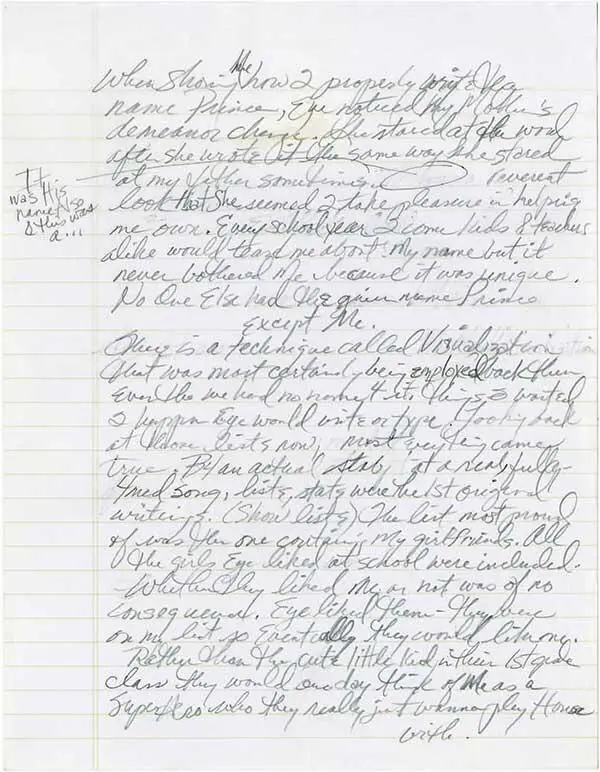 When showing me how 2 properly write the
name Prince, Eye noticed my Mother's
demeanor change. She stared at the word
after she wrote it the same way she stared
at my father sometimes. reverent
look that she seemed 2 take pleasure in helping
me own. Every school year 2 come kids & teachers
alike would tease me about my name but it
never bothered me because it was unique.
No One Else had the given name Prince
Except Me.
It
was His
name Also
& this was
a...
There is a technique called Visualization
that was most certainly being employed back then
Even tho we had no name 4 it. Things Eye wanted
2 happen Eye would write or type. Looking back
at those lists now, most everything came
true. By an actual stab at a real, fully-
4med song, lists, stats were the 1st original
writings. (Show lists) The list most proud
of was the one containing my girlfriends. All
the girls Eye liked at school were included.
Whether they liked me or not was of no
consequence. Eye liked them - They were
on my list so Eventually they would like me.
Rather than the cute little kid in their 1st grade
class they would one day think of Me as a
Superhero who they really just wanna play House
with.